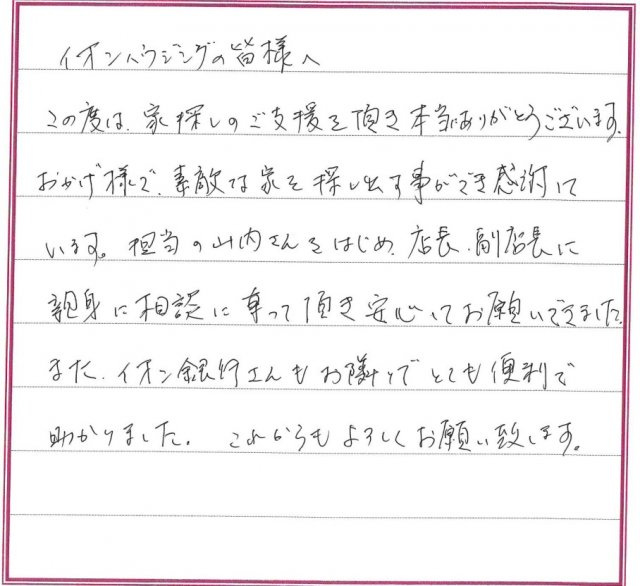 イオンハウジングの皆様へ
この度は、家探しのご支援を頂き本当にありがとうございます。
おかげ様で、素敵な家を探し出す事ができ感謝して
います。担当の山内さんをはじめ、店長、副店長に
親身に相談に乗って頂き安心してお願いできました。
また、イオン銀行さんもお隣りでとても便利で
助かりました。これからもよろしくお願い致します。